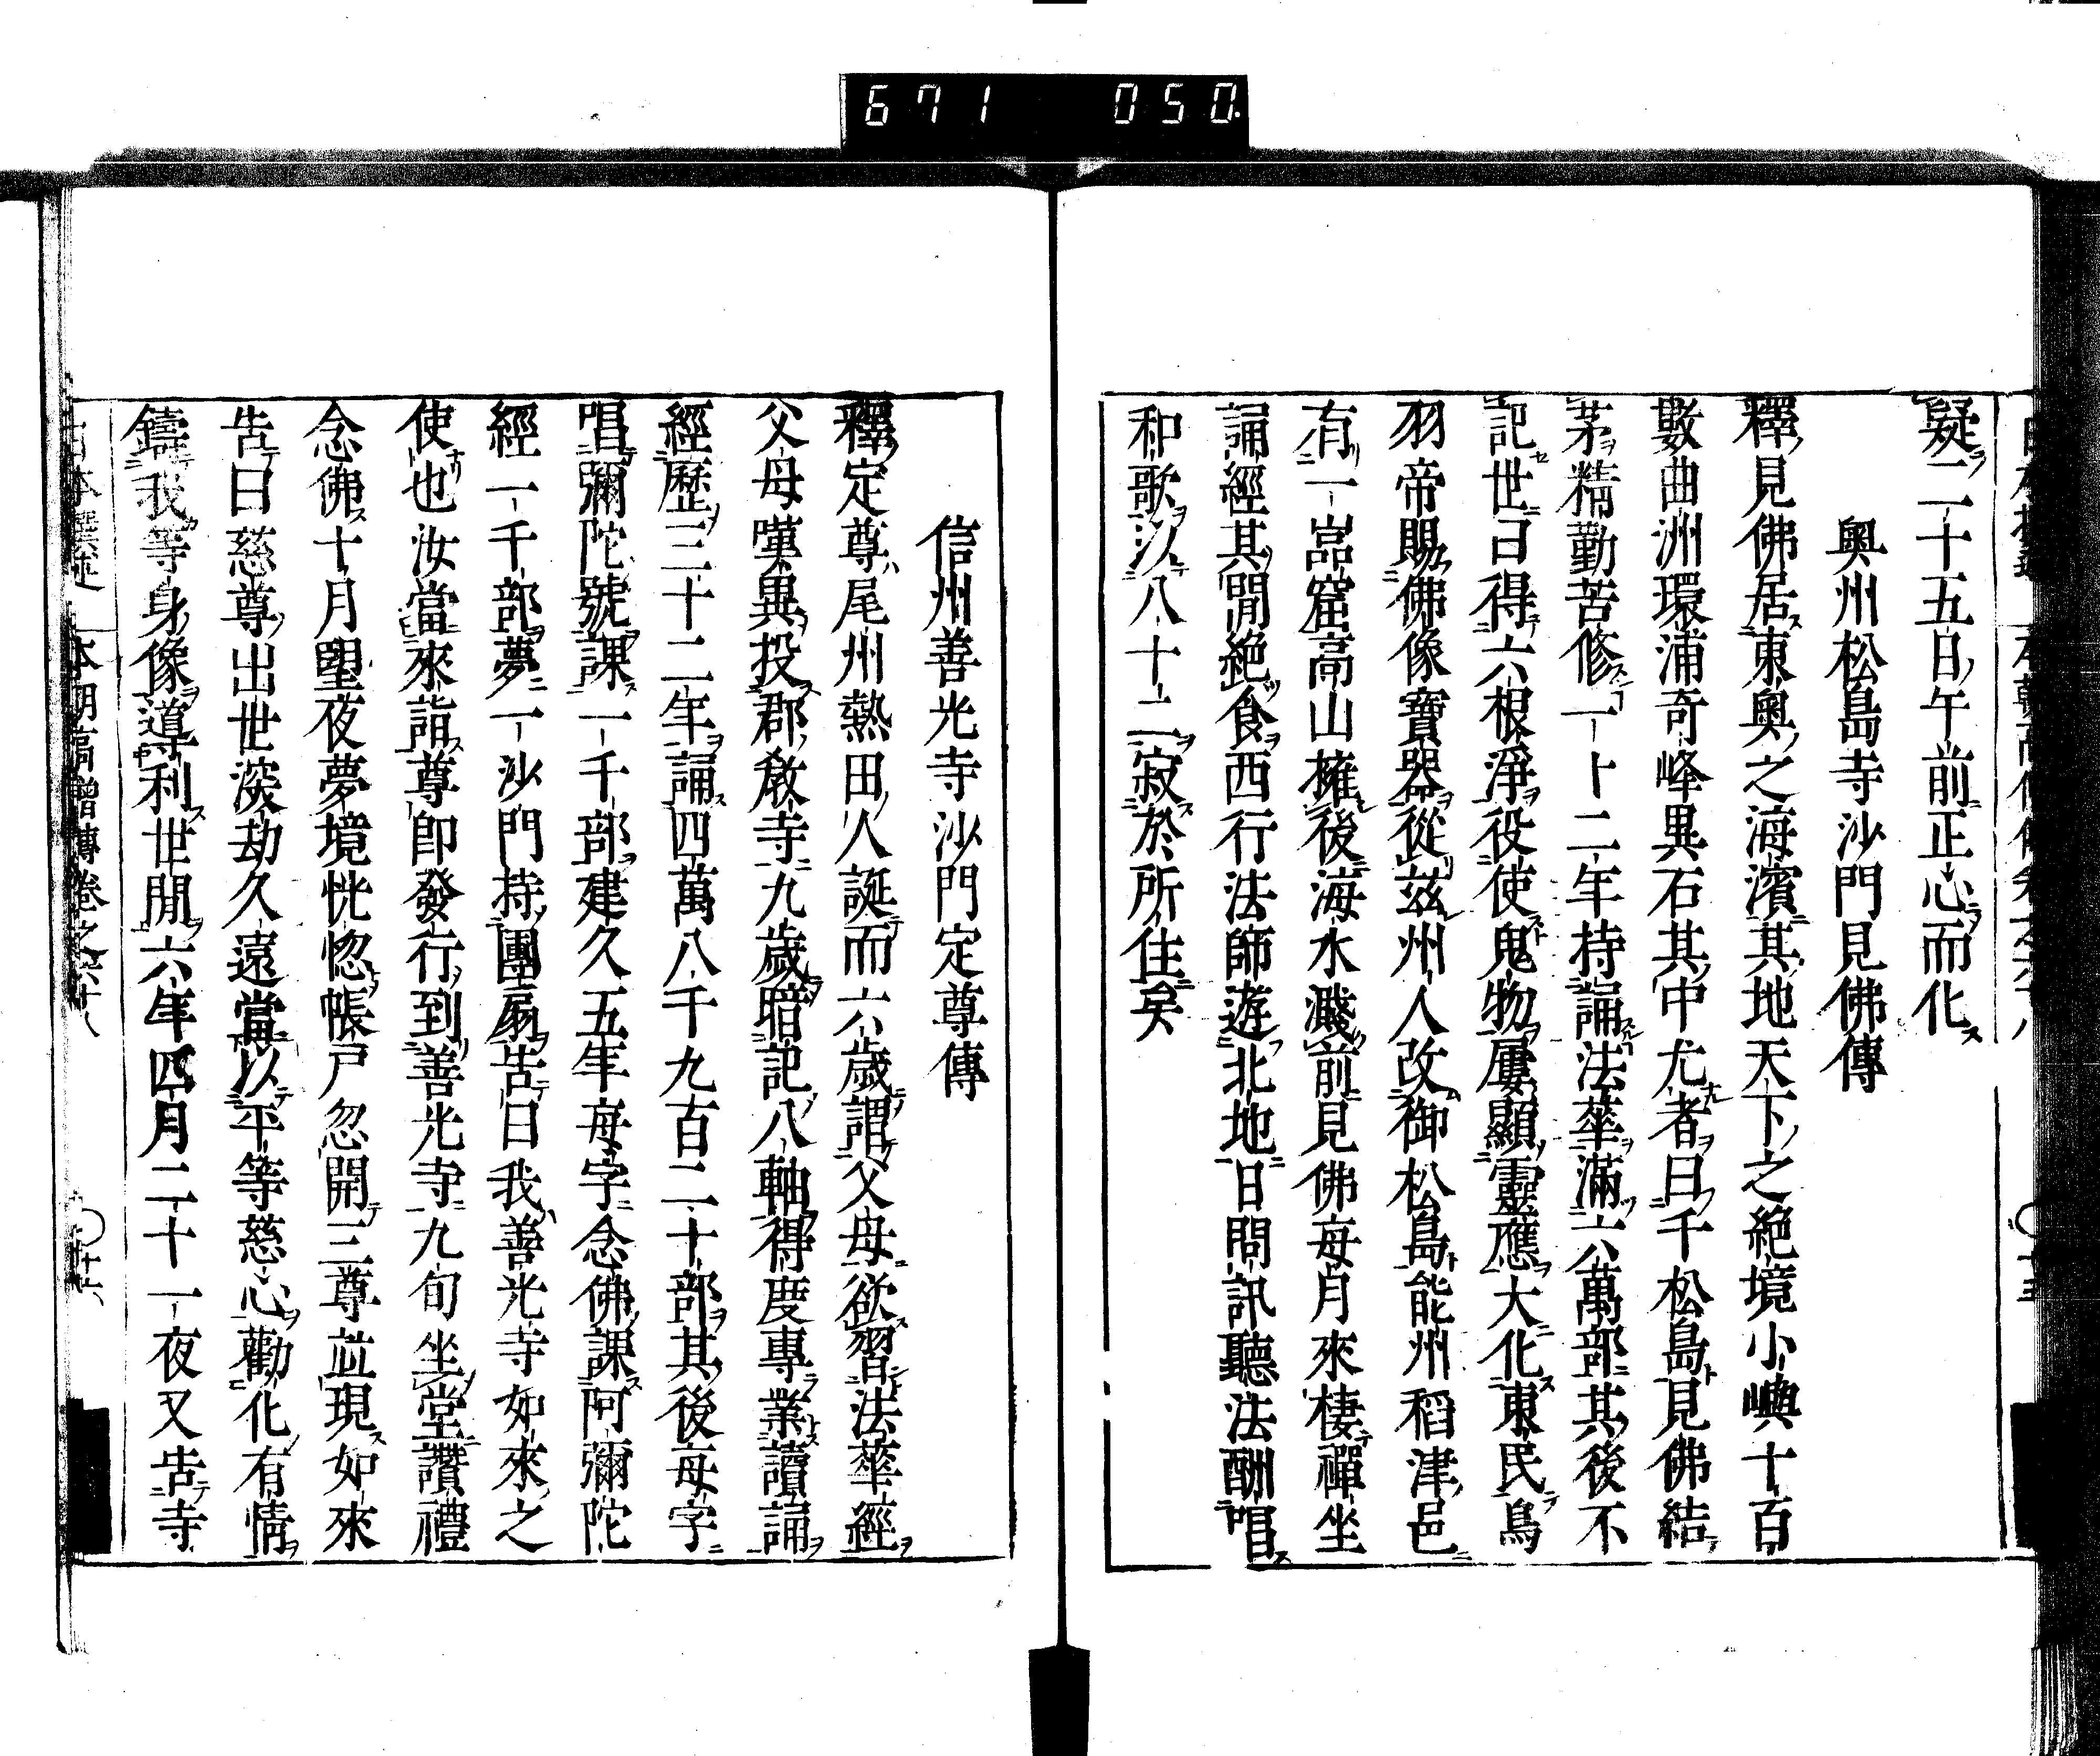 671 050
疑二十五日午前正心而化
奧州松島寺沙門見佛傳
釋見佛居東奧之海濱其地天下之絕境小嶼十百
數曲洲環浦奇峰異石其中尤者曰千松島見佛結
茅精勤苦修一十二年持誦法華滿六萬部其後不
記世曰得六根淨役使鬼物屢顯靈應大化東民鳥
羽帝賜佛像寶器從茲州人改御松島能州稻津邑
有一嵓窟高山擁後海水濺前見佛每月來棲禪坐
誦經其間絕食西行法師遊北地日問訊聽法酬唱
和歌以八十二寂於所住矣
信州善光寺沙門定尊傳
釋定尊尾州熱田人誕而六歲謂父母欲習法華經
父母嘆異投郡敎寺九歲暗記八軸得度專業讀誦
經歷三十二年誦四萬八千九百二十部其後每字
唱彌陀號課一千部建久五年每字念佛課阿彌陀
經一千部夢一沙門持團扇告曰我善光寺如來之
使也汝當來詣尊卽發行到善光寺九旬坐堂讚禮
念佛十月朢夜夢境恍惚帳戶忽開三尊並現如來
告曰慈尊出世深劫久遠當以平等慈心勸化有情
鑄我等身像導利世間六年四月二十一夜又告寺
本朝高僧傳卷之六十八